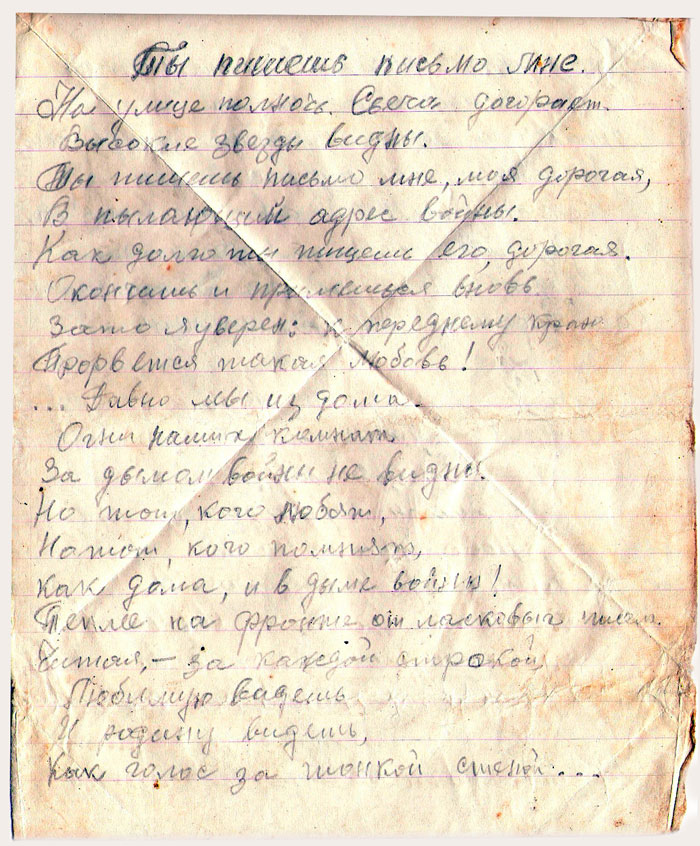 Ты пишешь письмо мне.
На улице полночь. Свеча догорает.
Высокие звезды видны.
Ты пишешь письмо мне, моя дорогая,
В пылающий адрес войны.
Как долго ты пишешь его, дорогая.
Окончишь и примешься вновь.
Зато я уверен: к переднему краю
Прорвется такая любовь!
... Давно мы из дома.
Огни наших комнат
За дымом войны не видны.
Но тот, кого любят,
Но тот, кого помнят,
Как дома, и в дыме войны!
Теплее на фронте от ласковых писем.
Читая, – за каждой строкой,
Любимую видешь
И родину видешь,
Как голос за тонкой стеной...